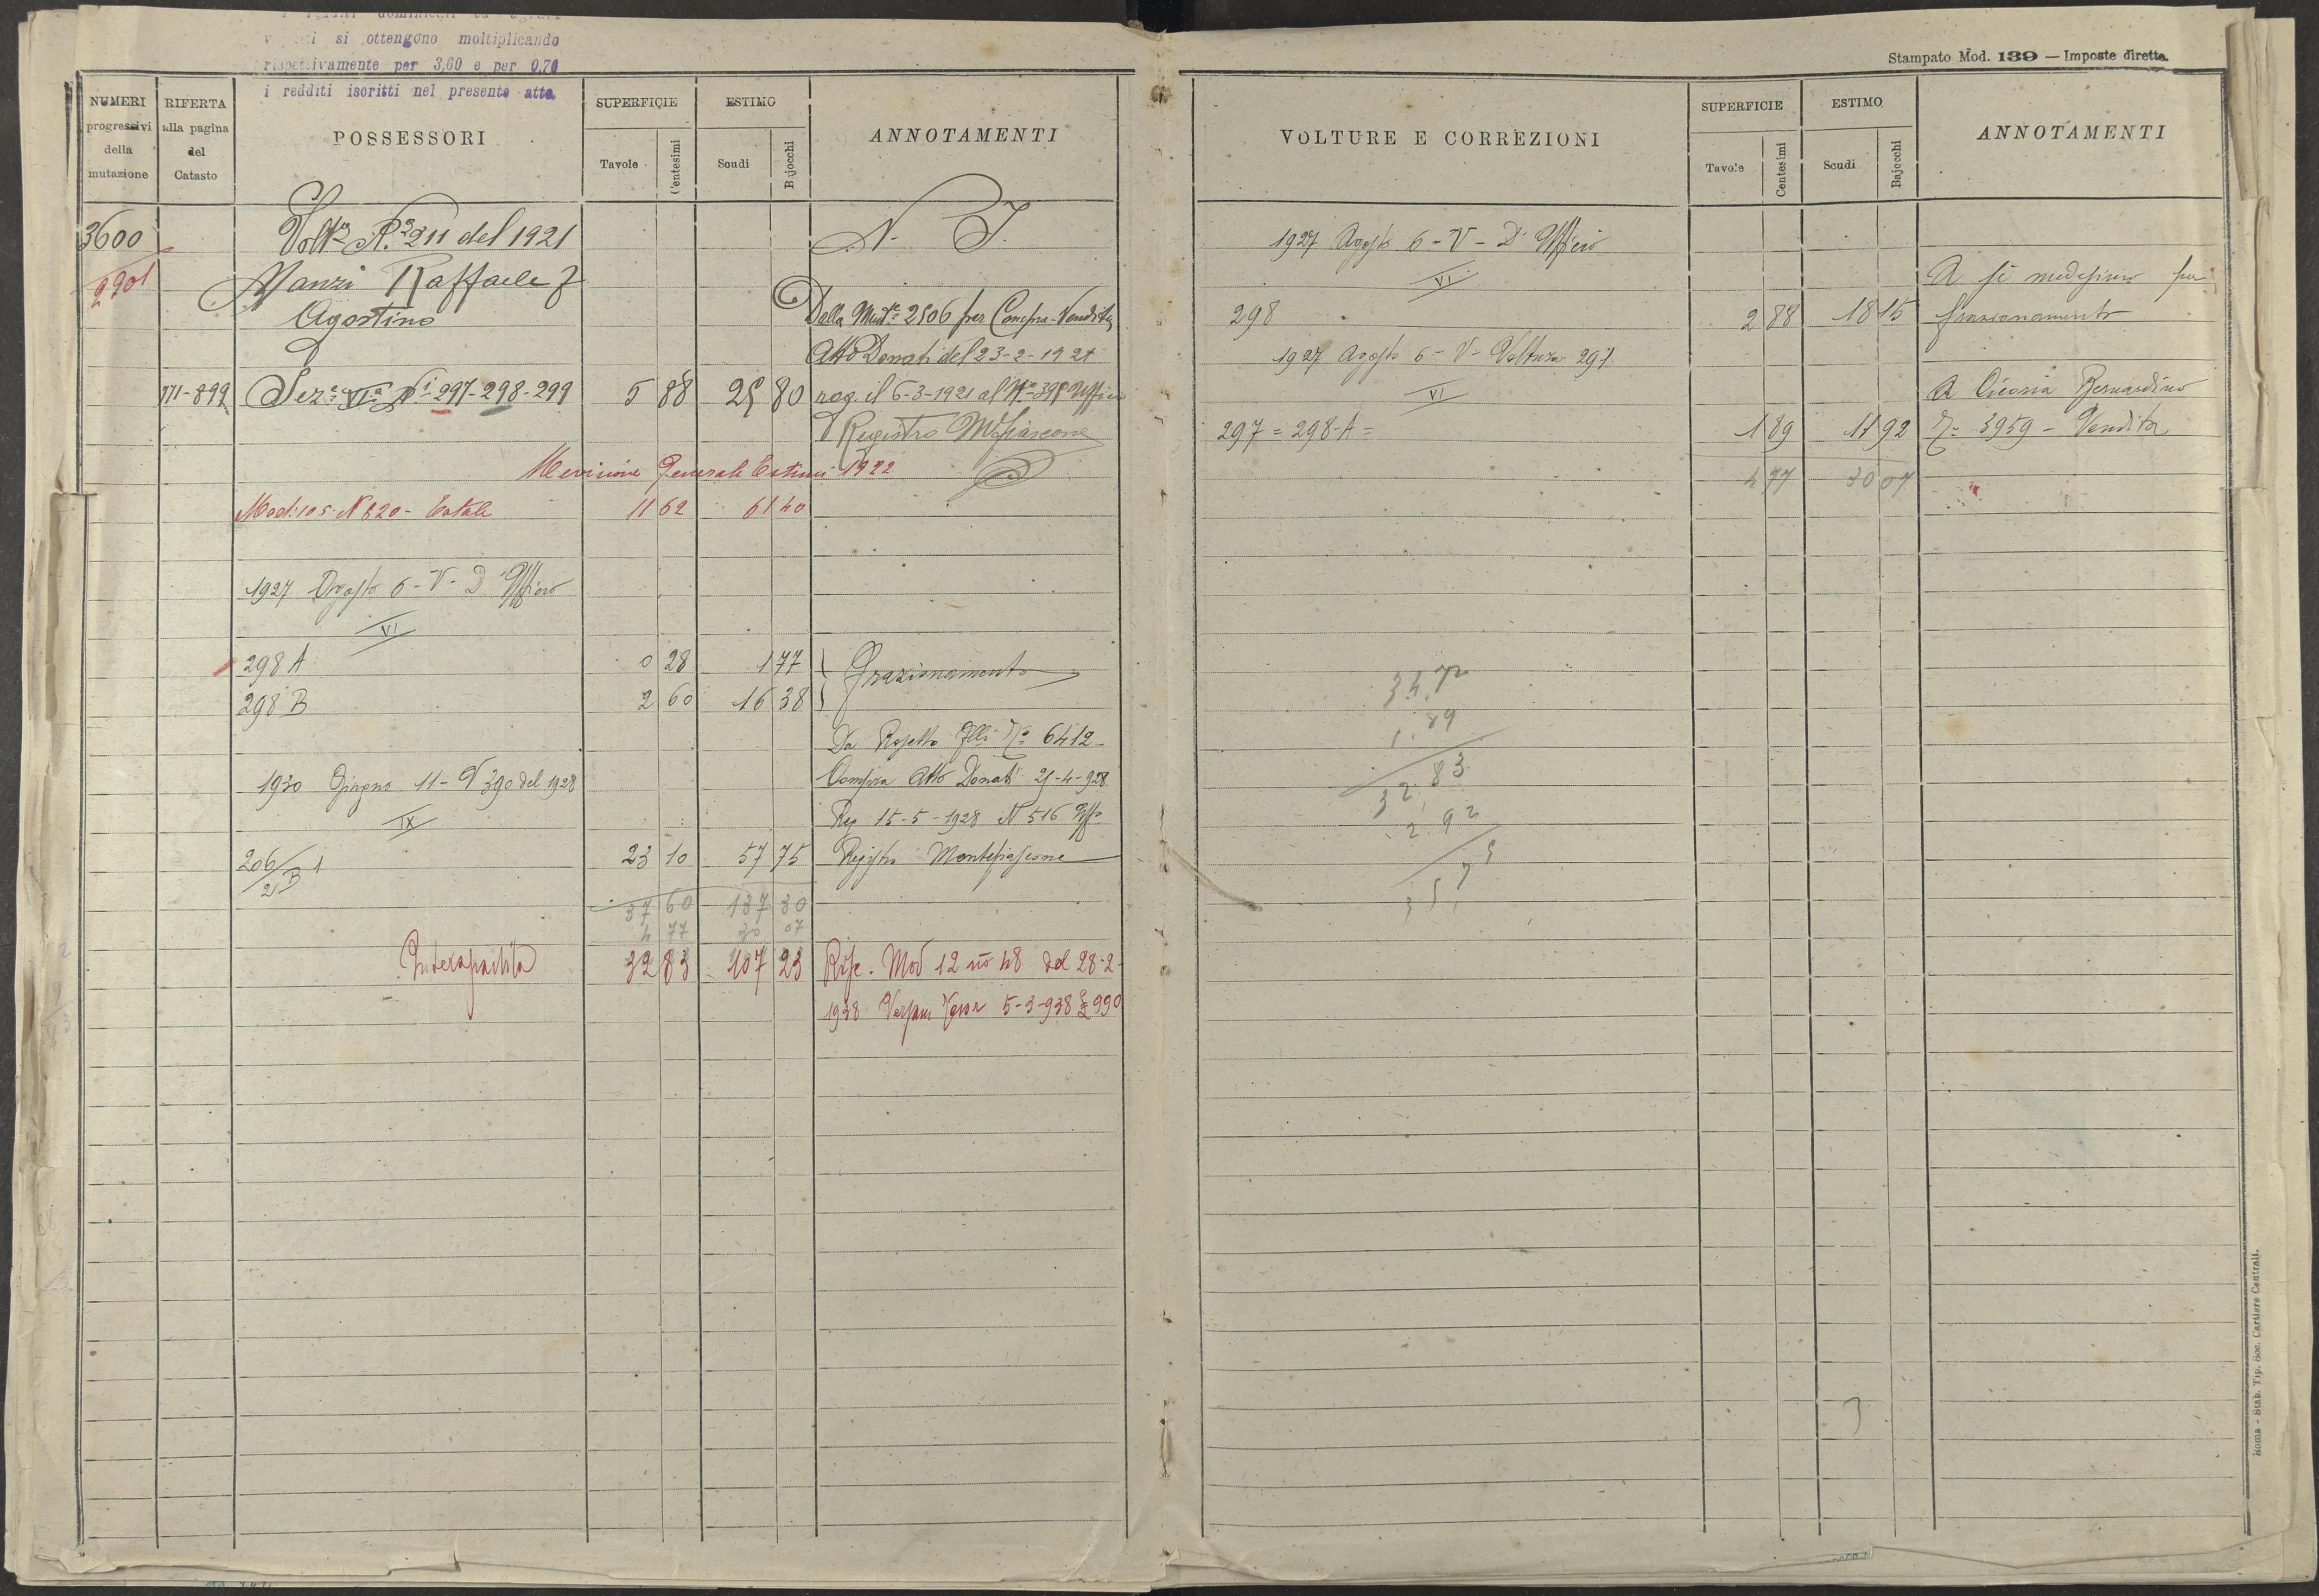 si ottengono moltiplicando
rispettivamente per 3,60 e per 0,70
i redditi iscritti nel presente atto
NUMERI progressivi della mutazione
RIFERTA alla pagina del Catasto
POSSESSORI
SUPERFICIE
Tavole
Centesimi
ESTIMO
Scudi
Bajocchi
ANNOTAMENTI
3600
Voltra N.º 211 del 1921
N. I.
2201
Manzi Raffaele f
Agostino
Dalla Mutne 2506 per Compra-Vendita
Atto Donati del 23-2-1921
771-899 Seze VIa Ni 297-298-299 5 88 25 80 reg. il 6-3-1921 al No 398 Ufficio
Registro Mfiascone
Revisione Generale Estimi 1922
Mod: 105 N 620 - Totale 11 62 61 40
1927 Agosto 6 - V - D'Ufficio
VI
298 A 0 28 1 77
298 B 2 60 16 38
Frazionamento
Da Flli 6412
1930 Giugno 11 - V 390 del 1928
Compra Atto Donati 21-4-928
IX
Reg 15-5-1928 N 516 Uffo
206/2 B 1 23 10 57 75 Registro Montefiascone
37 60 137 30
4 77 30 07
Intera partita 32 83 107 23 Rife. Mod 12 no 48 del 28-2-
1938 5-3-938 £ 990
Stampato Mod. 139 — Imposte dirette.
VOLTURE E CORREZIONI
SUPERFICIE
Tavole
Centesimi
ESTIMO
Scudi
Bajocchi
ANNOTAMENTI
1927 Agosto 6 - V - D'Ufficio
VI
A se medesimo per
298 2 88 18 15 frazionamento
1927 Agosto 6 - V - Voltura 291
VI
A Ciconia Bernardino
297 = 298-A = 1 89 11 92 3959 - Vendita
4 77 30 07
34.72
1.89
32.83
2.92
35.75
Roma - Stab. Tip. Soc. Cartiere Centrali.